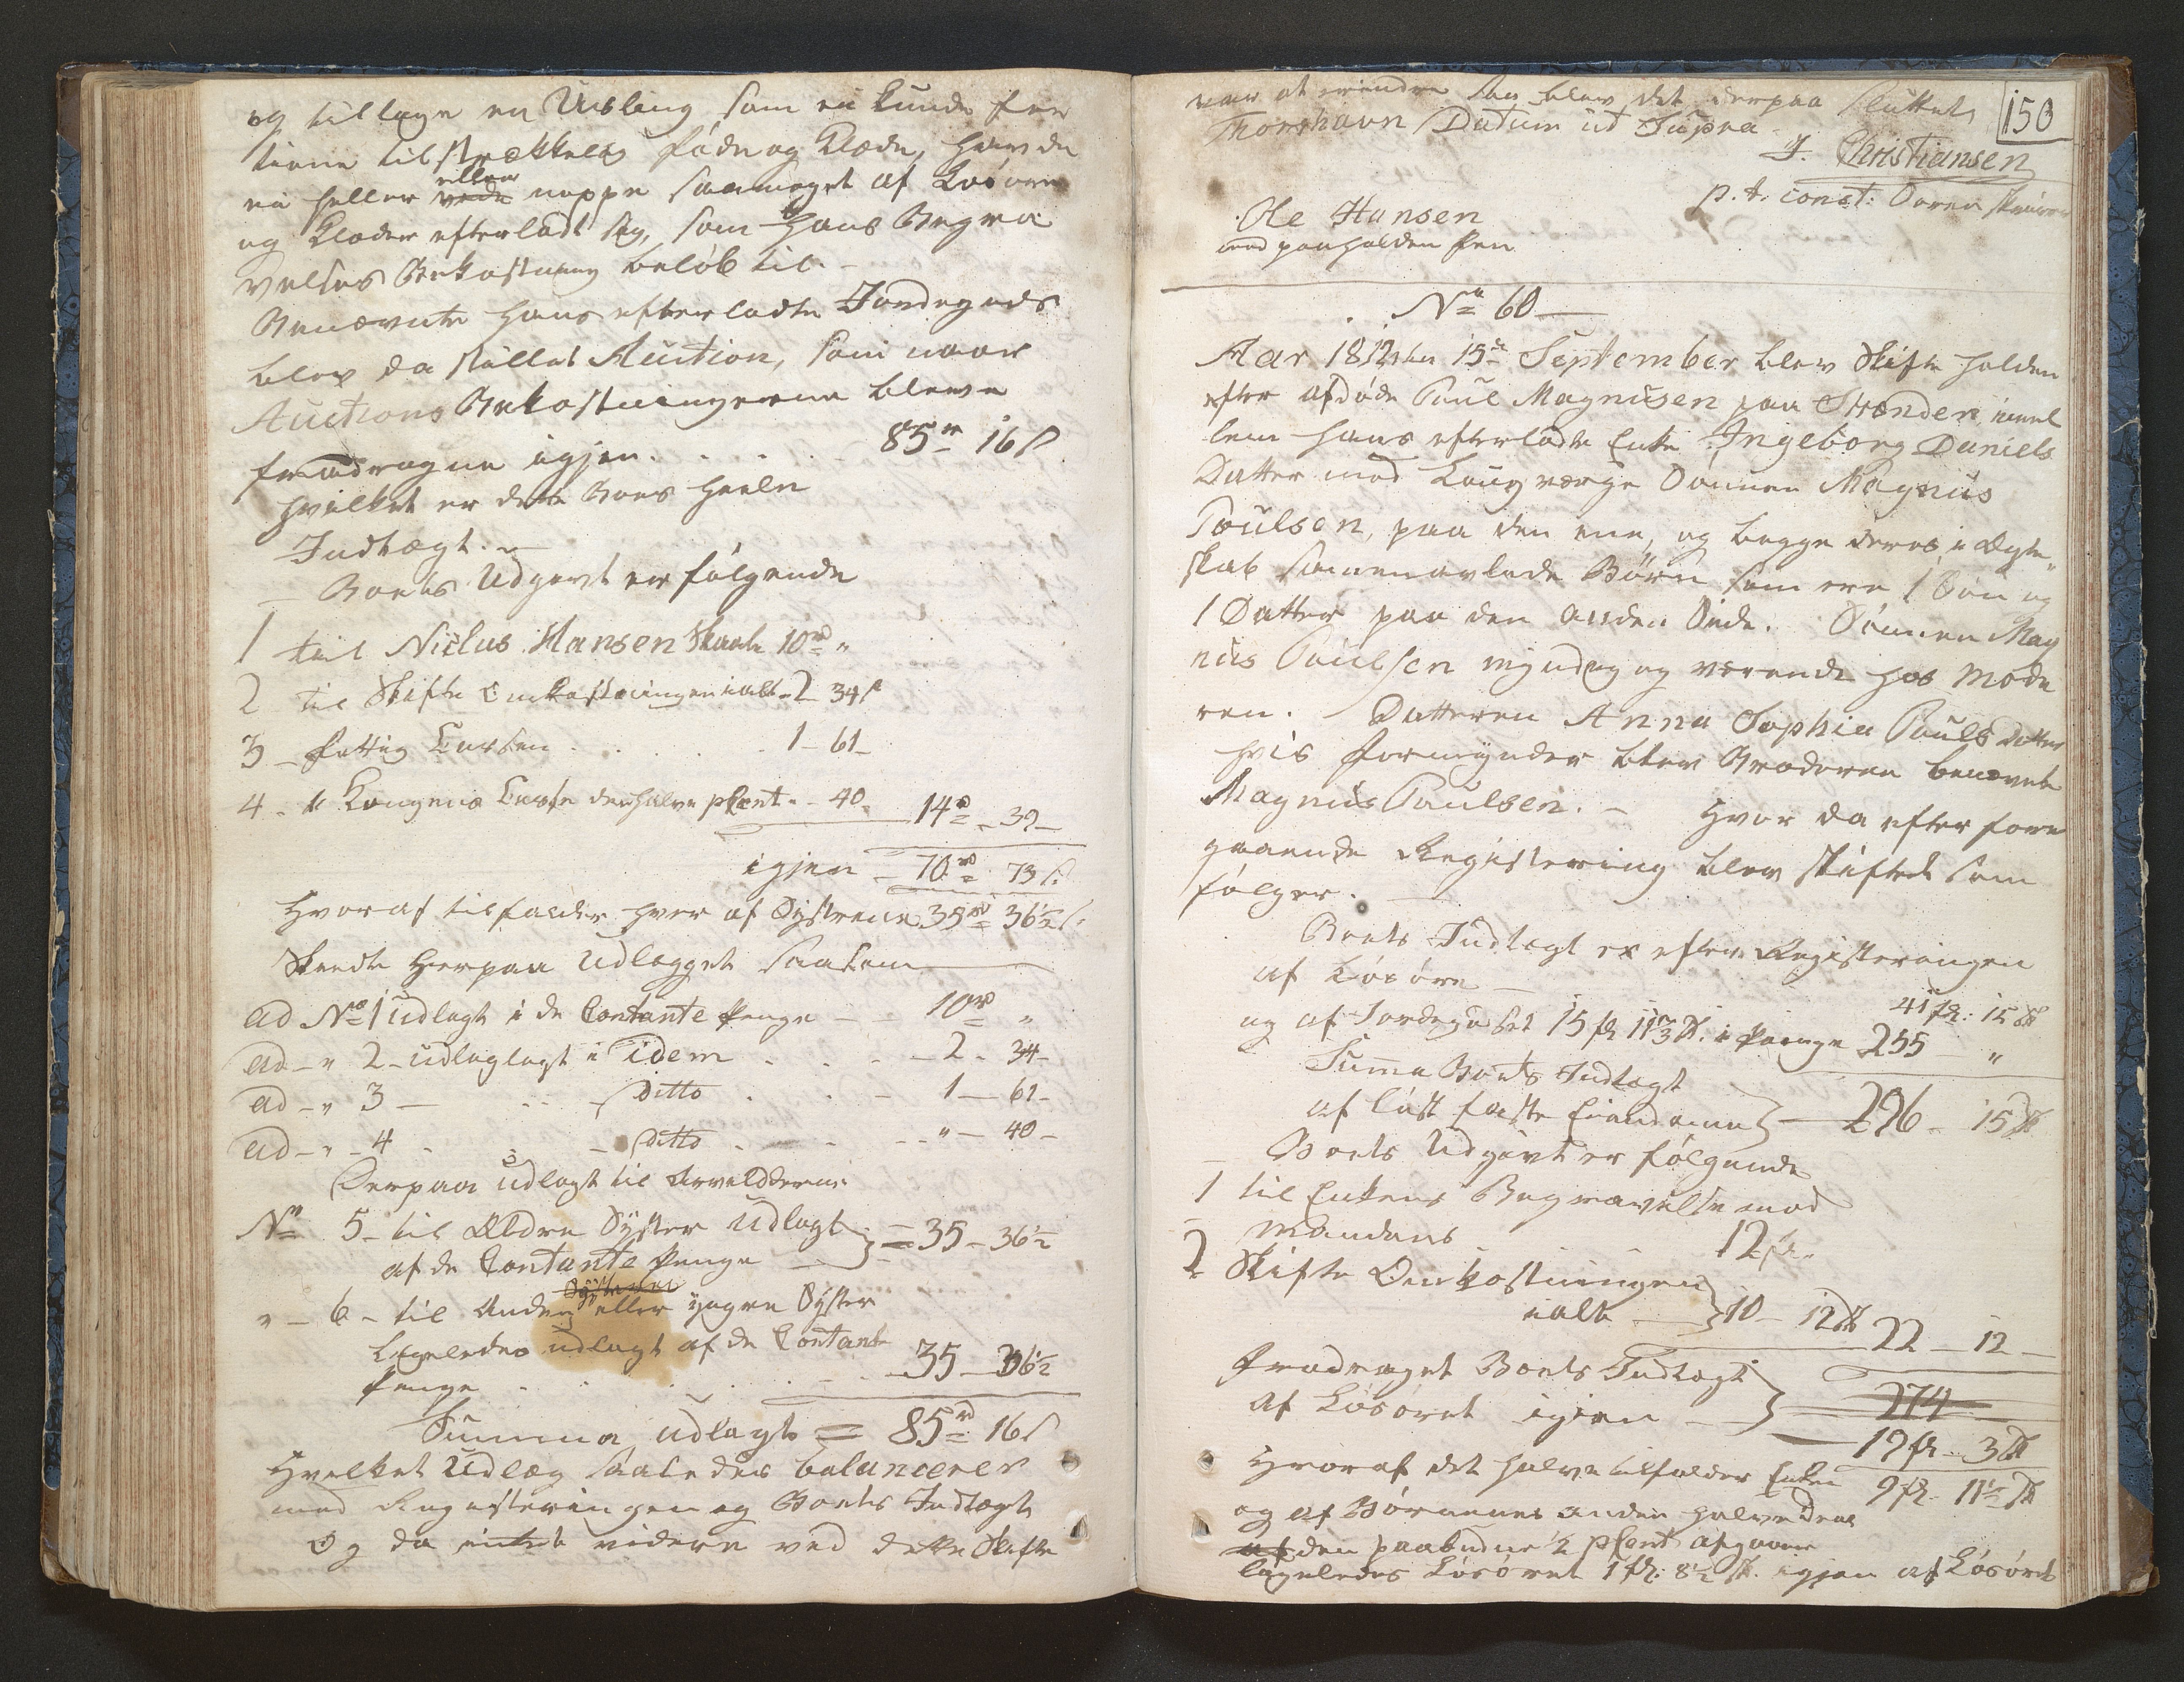 og tillige en Usling som ei kunde for
tiene tilstrækkelig Føde og Klæde, havde
ei heller eller neppe saameget af Løsøre
og Klæder efterladt sig, som hans Begra
velses Bekostning beløb til.
Benævnte hans efterladte Jordegods
blev da stillet Auction, som naar
Auctions Bekostningerne bleve
fradragne igjen . . . . 85 rd 16 s
hvilket er dette Boes heele
Indtægt.
Boets Udgivt er følgende
1 til Niclas Hansen Skaale 10 rd "
2 til Skifte Omkostningen ialt - 2 34 s
3 - Fattig Cassen . . . . 1 - 61 -
4 - til Kongens Casse den halve pCent - - 40 - 14 rd - 39 -
igjen - 70 rd 73 s
Hvoraf tilfalder hver af Systrene 35 rd 36½ s
Skeedte Herpaa Udlægget saasom
ad No 1 Udlagt i de Contante Penge - - 10 rd "
ad - " 2 - udlaglagt i idem . . . - 2 - 34 -
ad - " 3 - - - ditto . . - 1 - 61 -
ad - " - 4 - - ditto . - - " - 40 -
Derpaa udlagt til Arveldderne
No 5 - til Ældre Syster Udlagt
af de Contante Penge - = 35 - 36½
" - 6 - til Anden Systeren eller yngre Syster
ligeledes udlagt af de Contante
Penge . . . . . - 35 - 36½
Summa udlagt = 85 rd 16 s
Hvelket Udlæg saaledes balancerer
med Registeringen og Boets Indtægt
Og da intet videre ved dette Skifte
var at erindre saa blev det derpaa sluttet
150
Thorshavn Datum ut Supra
J. Christiansen
p. t. const: Sorenskriver
Ole Hansen
med paaholden Pen
No 60
Aar 1812 den 15de September blev Skifte holden
efter afdøde Poul Magnusen paa Strænder, imel
lem hans efterladte Enke Ingeborg Daniels
Datter med Laugværge Sønnen Magnus
Poulsen, paa den ene, og begge deres i Ægte„
skab sammenavlede Børn som ere 1 Søn og
1 Datter paa den anden Side. Sønnen Mag
nus Poulsen myndig og værende hos Mode
ren. Datteren Anna Sophia Pouls datter
hvis Formynder blev Broderen benævnte
Magnus Poulsen. - Hvor da efter fore
gaaende Registering blev skiftet som
følger.
Boets Indtægt er efter Registeringen
af Løsøre - 41 fl: 15 s
og af Jordegodset 15 fl 11⅓ s: i Penge 255 - "
Summa Boets Indtægt
af Løst faste Eiendomme - 296 - 15 s
Boets Udgivt er følgende
1 til Enkens Begravelse mod
Mandens 12 fl.
2 Skifte Omkostningen
ialt - 10 - 12 s 22 - 12 -
Fradraget Boets Indtægt
af Løsøret igien - 274
19 fl - 3 s
Hvoraf det halve tilfalder Enken 9 fl - 11½ s
og af Børnenes anden halve Deel
af den paabudne ½ pCent afgaaer
ligeledes Løsøret 1 fl: 8½ s. igjen af Løsøret